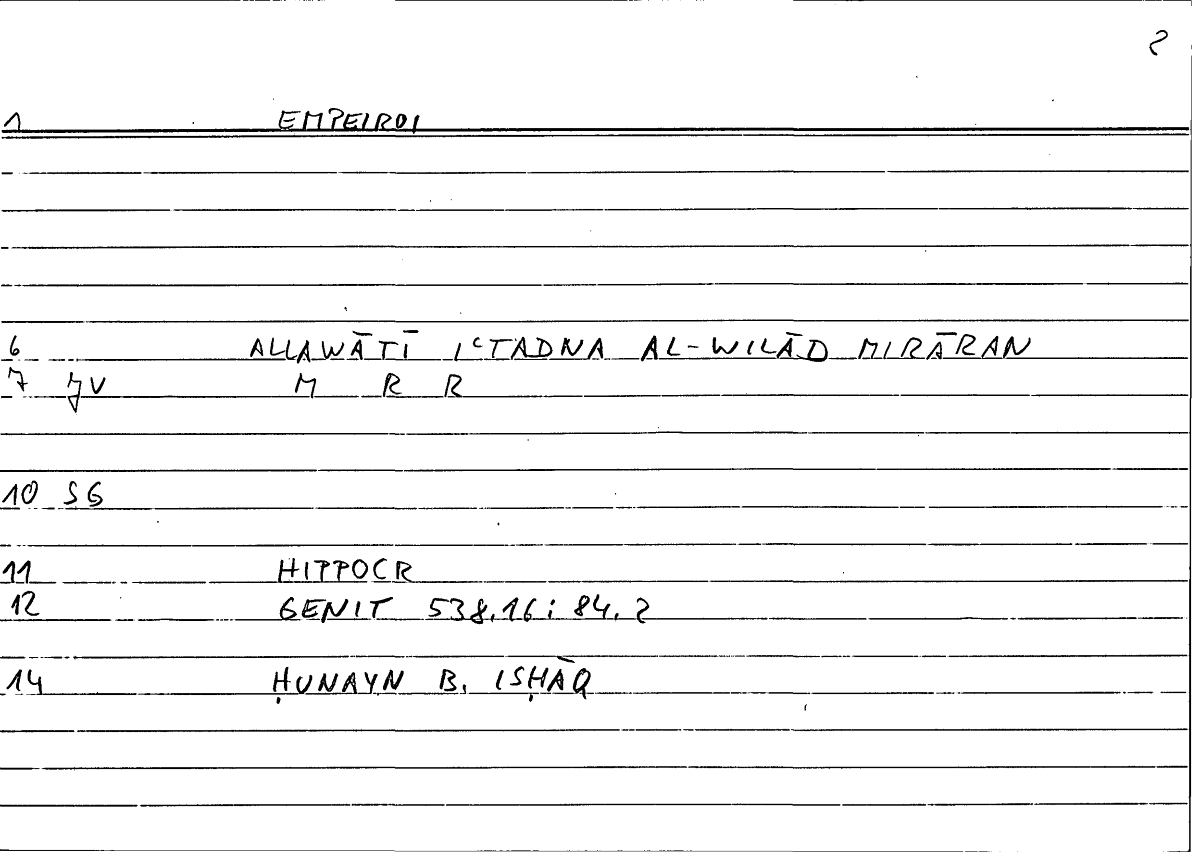 2
1 EMPEIROI
6 ALLAWĀTĪ IʿTADNA AL-WILĀD MIRĀRAN
7 M R R
10 SG
11 HIPPOCR
12 GENIT 538.16; 84.2
14 ḤUNAYN B. ISḤĀQ